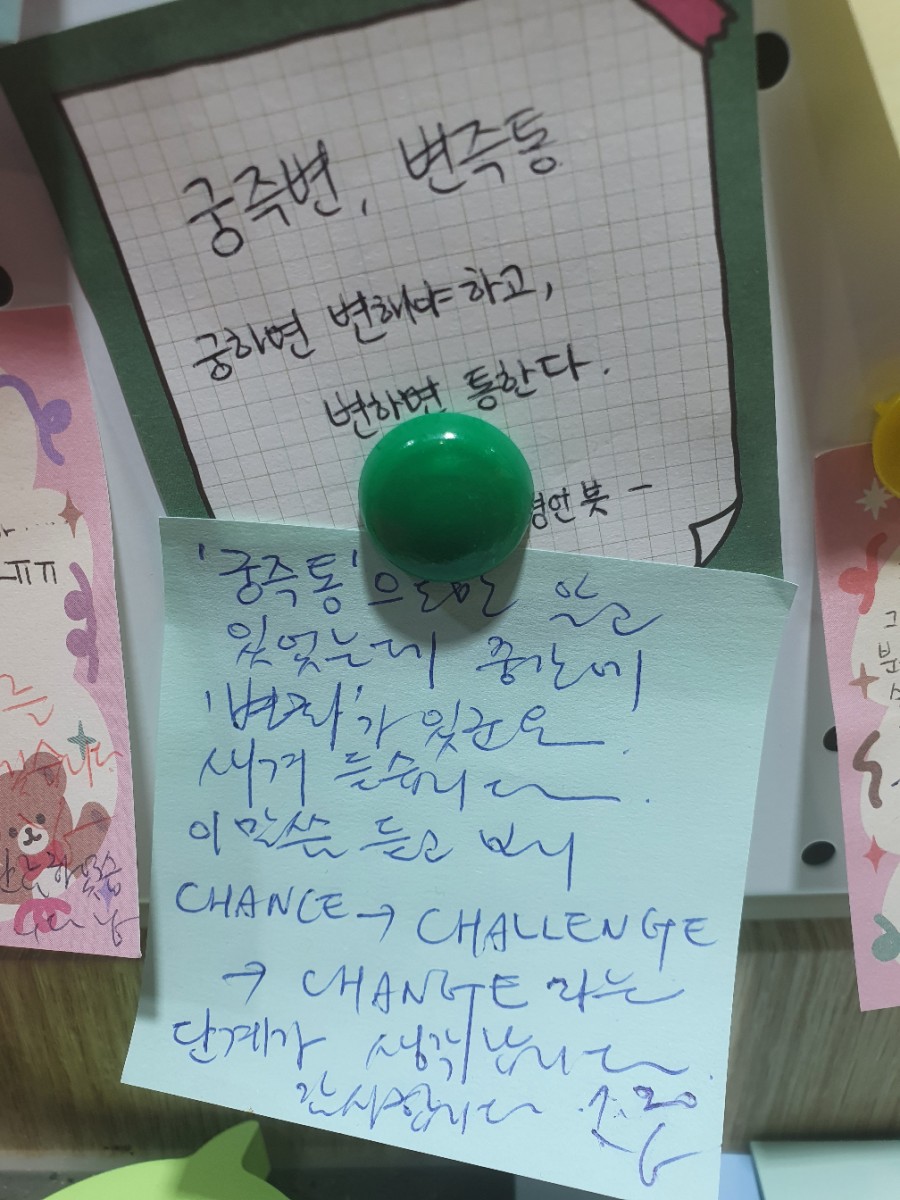 궁즉변, 변즉통
궁하면 변해야하고,
변하면 통한다.
붓 -
'궁즉통'으로만 알고
있었는데 중간에
'변화'가 있군요
새겨 듣습니다.
이 말씀 듣고 보니
CHANCE → CHALLENGE
→ CHANGE 라는
단계가 생각납니다.
감사합니다
ㅠㅠ